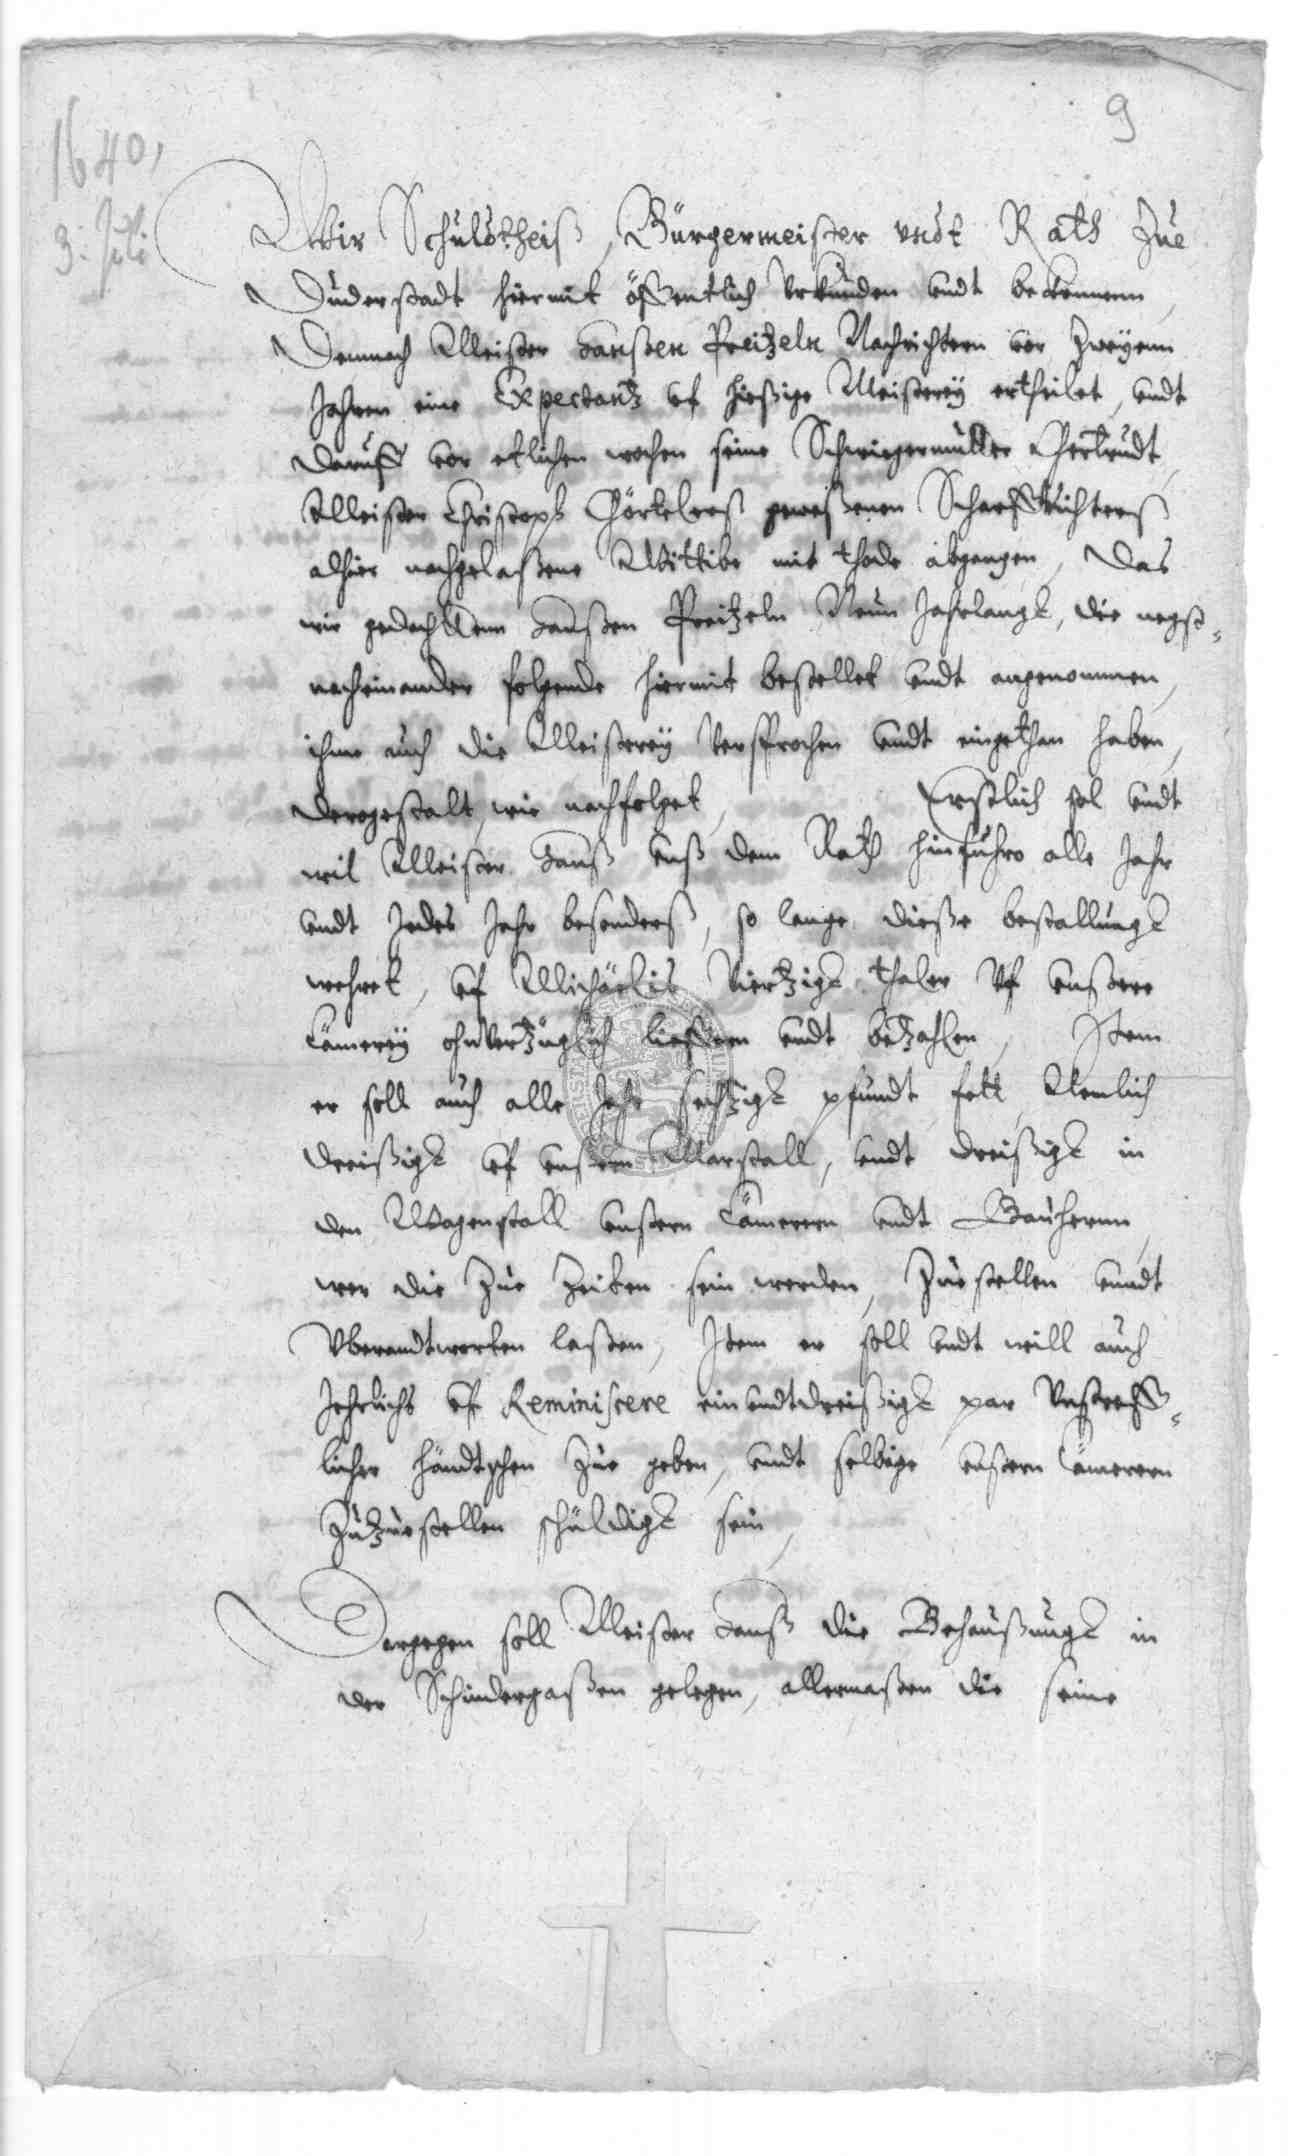 9
1640,
3. Juli
Wir Schuldtheiß, Bürgermeister undt Rath Zue
Duderstadt hiermit öffentlich Urkunden undt bekennenn,
Demnach Meister Hanßen Preitzeln Nachrichtern vor Zweyenn
Jahren eine Expectantz uf hießige Meisterey ertheilet, undt
daruff vor etlichen wochen seine Schwiegermutter Gertrudt,
Meister Christoph Görtelers geweßenen Scharffrichters
alhier nachgelaßene Wittibe mit thode abgangen, Das
wir gedachtem Hanßen Preitzeln Neun Jahrlangk, die negst-
nacheinander folgende hiermit bestellet undt angenommen,
ihme auch die Meisterey Versprochen undt eingethan haben,
dergestalt, wie nachfolget, Erstlich sol undt
wil Meister Hanß unß dem Rath hinfuhro alle Jahr
undt Jedes Jahr besonders, so lange dieße bestallungk
wehret, uf Michaelis Viertzigk thaler Uf unßere
Cämerey ohnverzüglich lieffern undt bezahlen, Item
er soll auch alle Jahr sechtzigk pfundt fett, Nemlich
dreißigk uf unßern Marstall, undt dreißigk in
den Wagenstall unßern Cämerern undt Bauherrnn,
wer die Zue Zeiten sein werden, Zuestellen unndt
Uberandtworten laßen, Item er soll undt will auch
Jehrlichs uf Reminiscere einundtdreißigk par Unstreff-
licher händtschen Zue geben, undt selbige unßern Cämerern
Zutzuestellen schüldigk sein,
Dargegen soll Meister Hanß die Behaußungk in
der Schindergaßen gelegen, allermaßen die seine